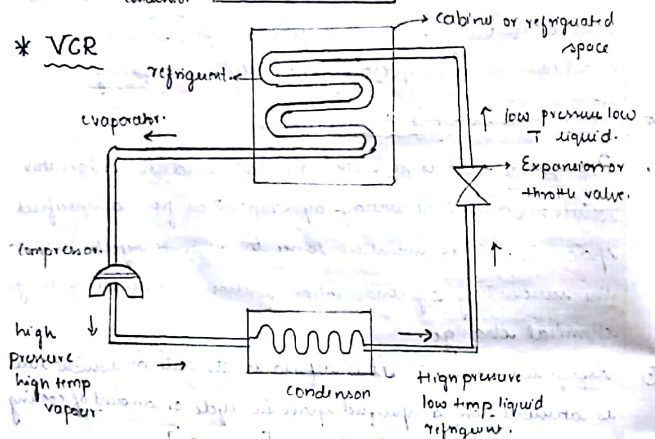 * VCR
cabinet or refriguated
space
refriguent.
evaporator.
low pressure low
T liquid.
Expansion or
throttle valve.
compressor.
high
pressure
high temp
vapour.
condenson
High pressure
low tmp liquid
refriguent.